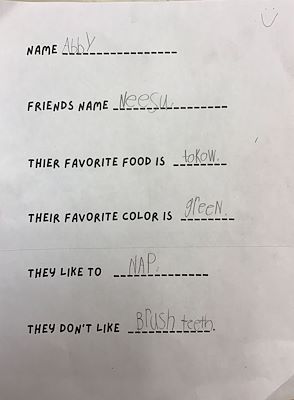 NAME Abby
FRIENDS NAME Neesu.
THIER FAVORITE FOOD IS tokow.
THEIR FAVORITE COLOR IS green.
THEY LIKE TO NAP.
THEY DON'T LIKE Brush teeth.